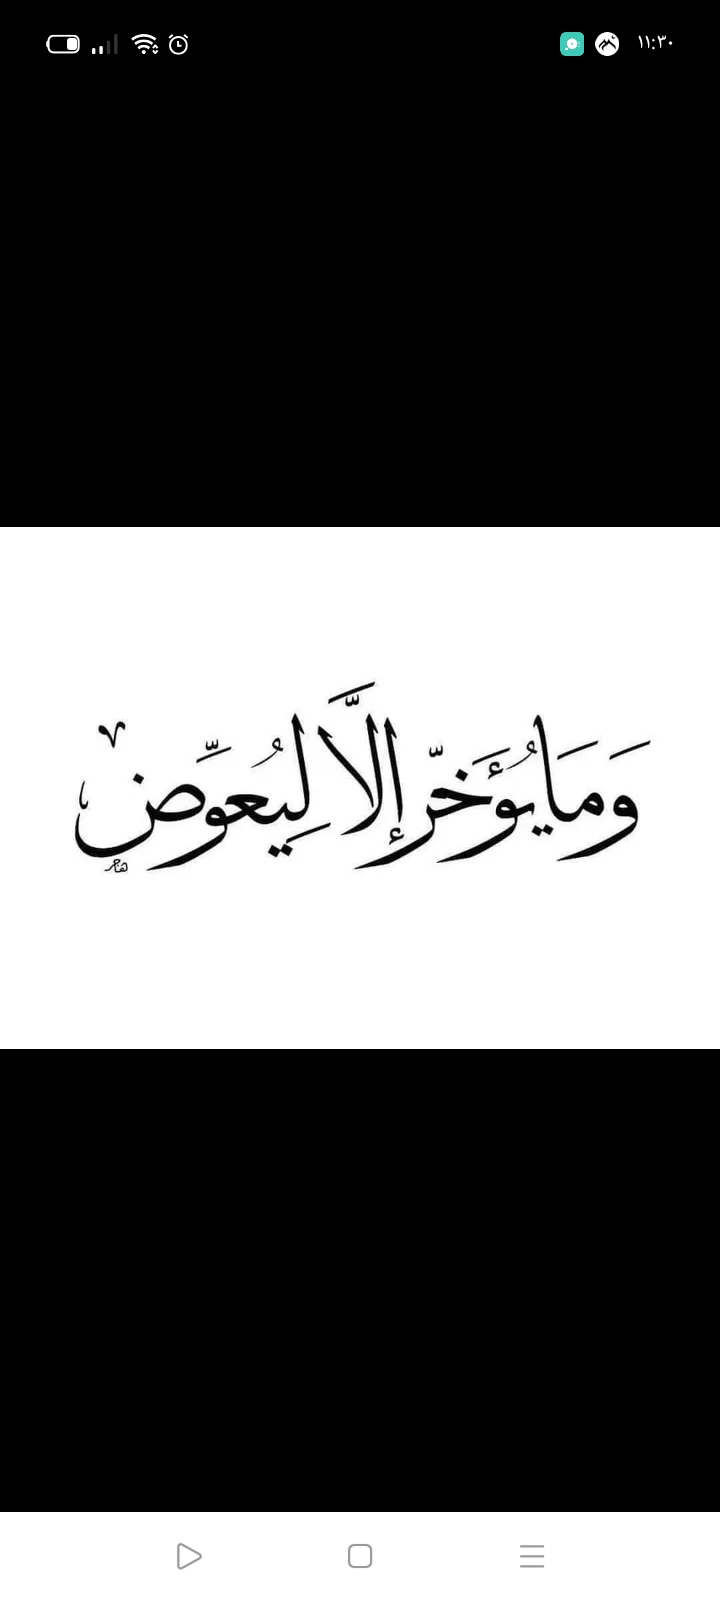 ١١:٣٠
وَمَا يُؤَخّر إِلَّا لِيُعوِّض